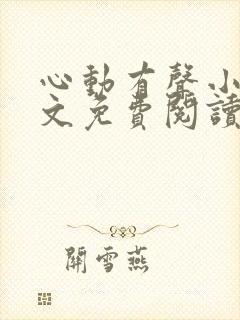 心動有聲小
文免費閱讀
關雪燕